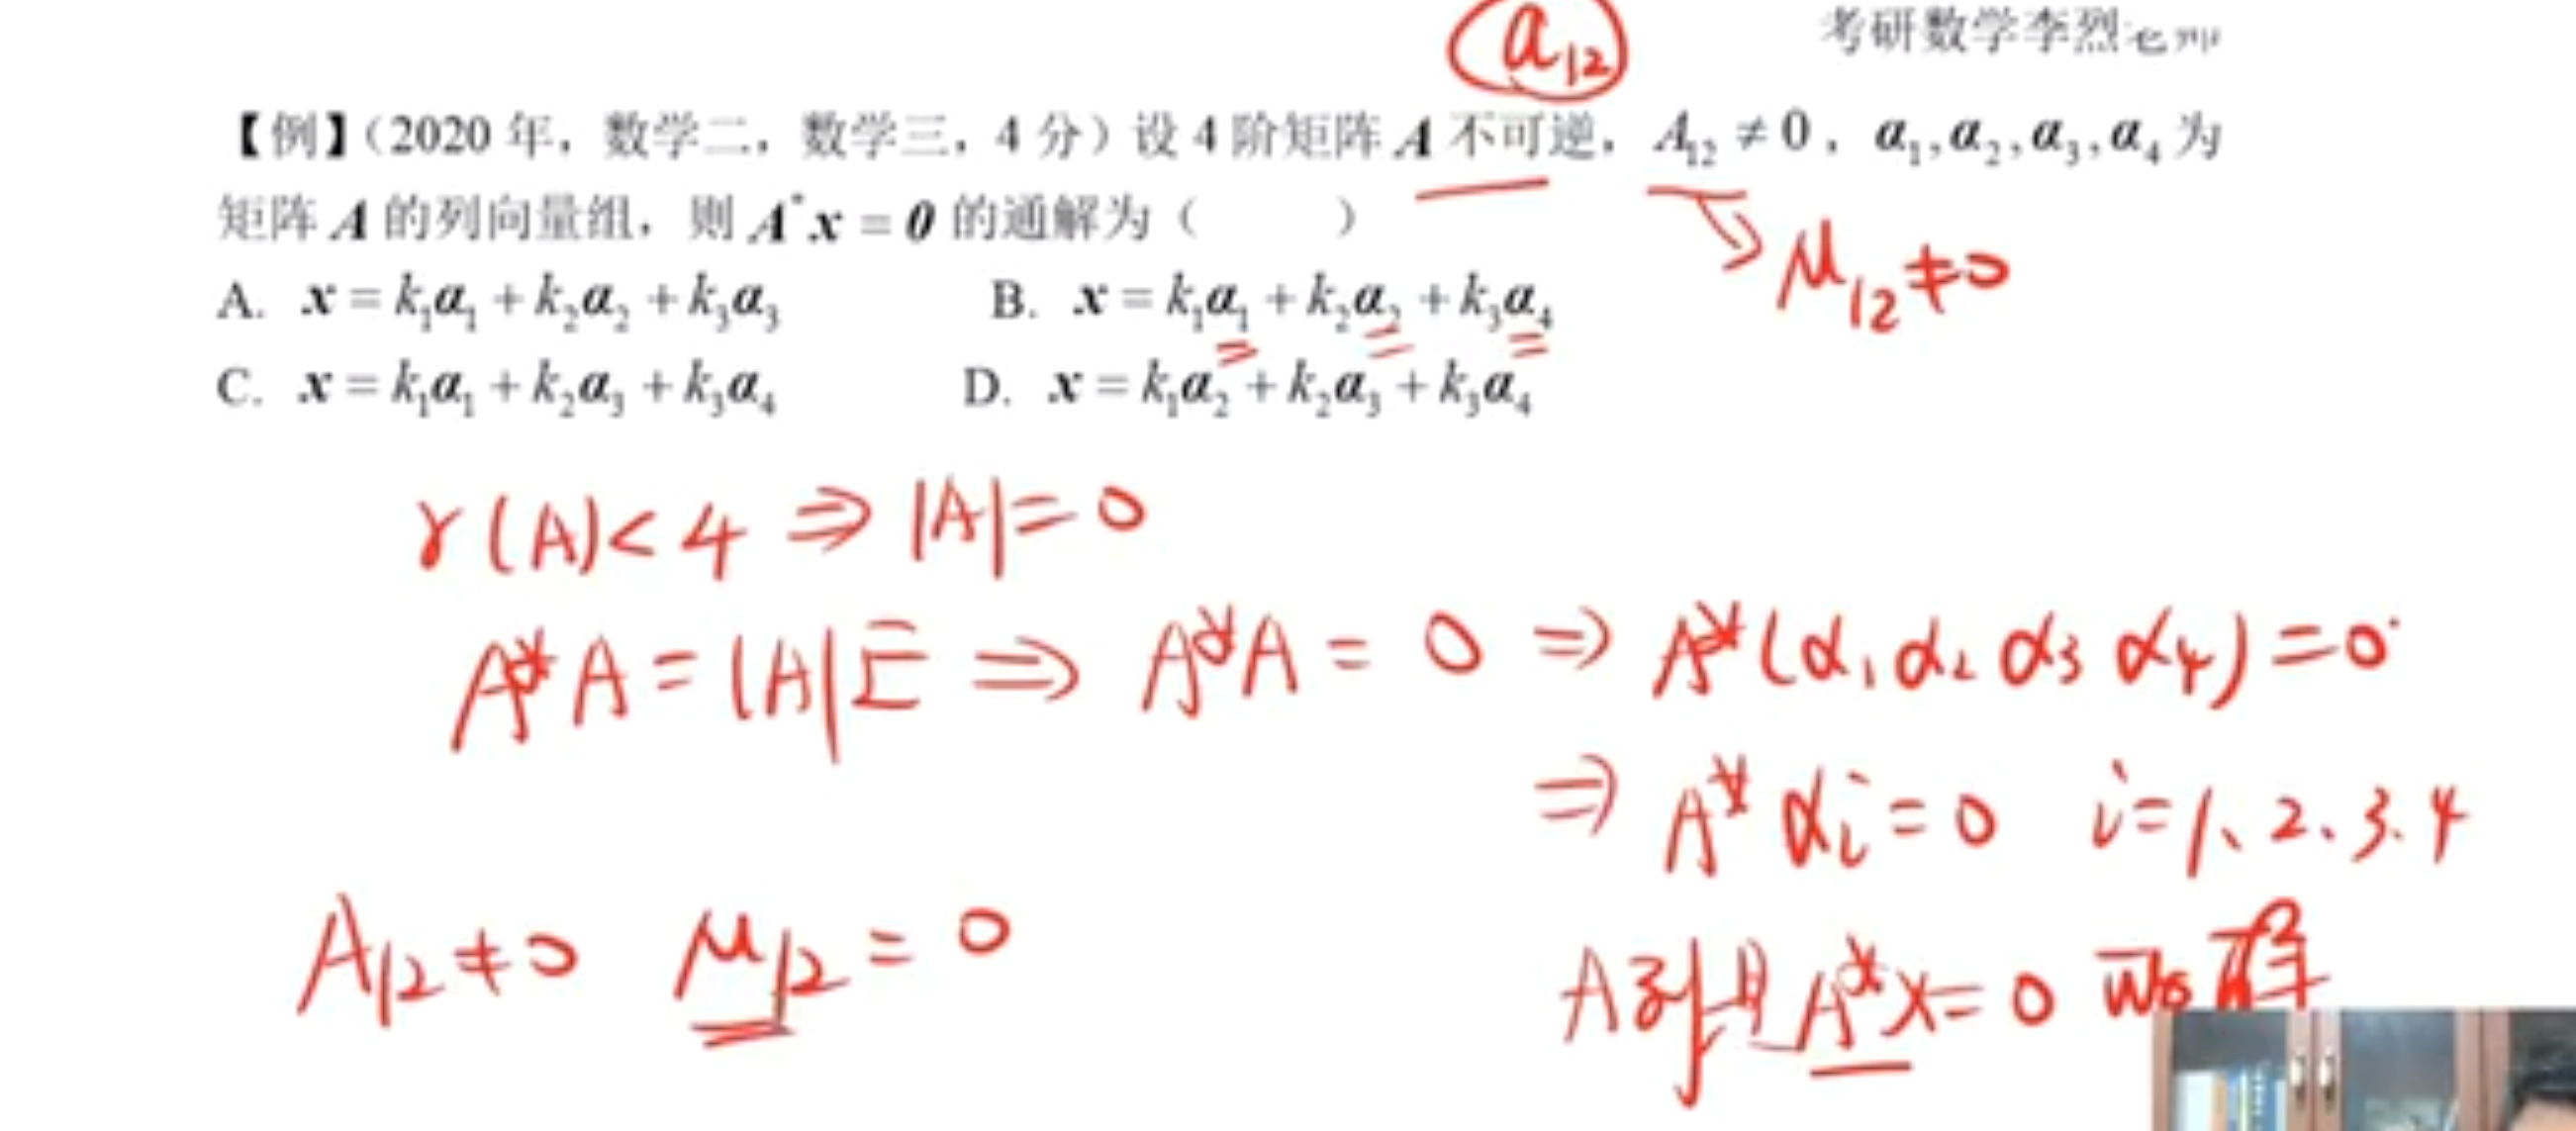 a₁₂
考研数学李烈老师
【例】（2020 年，数学二，数学三，4 分）设 4 阶矩阵 A 不可逆，A₁₂ ≠ 0，α₁, α₂, α₃, α₄ 为
矩阵 A 的列向量组，则 A*x = 0 的通解为（    ）
M₁₂≠0
A. x = k₁α₁ + k₂α₂ + k₃α₃    B. x = k₁α₁ + k₂α₂ + k₃α₄
C. x = k₁α₁ + k₂α₃ + k₃α₄    D. x = k₁α₂ + k₂α₃ + k₃α₄
r(A)<4 ⇒ |A|=0
A*A=|A|E ⇒ A*A=0 ⇒ A*(α₁ α₂ α₃ α₄)=0
⇒ A*αi=0 i=1、2、3、4
A₁₂≠0 M₁₂=0
A列 A*x=0 解